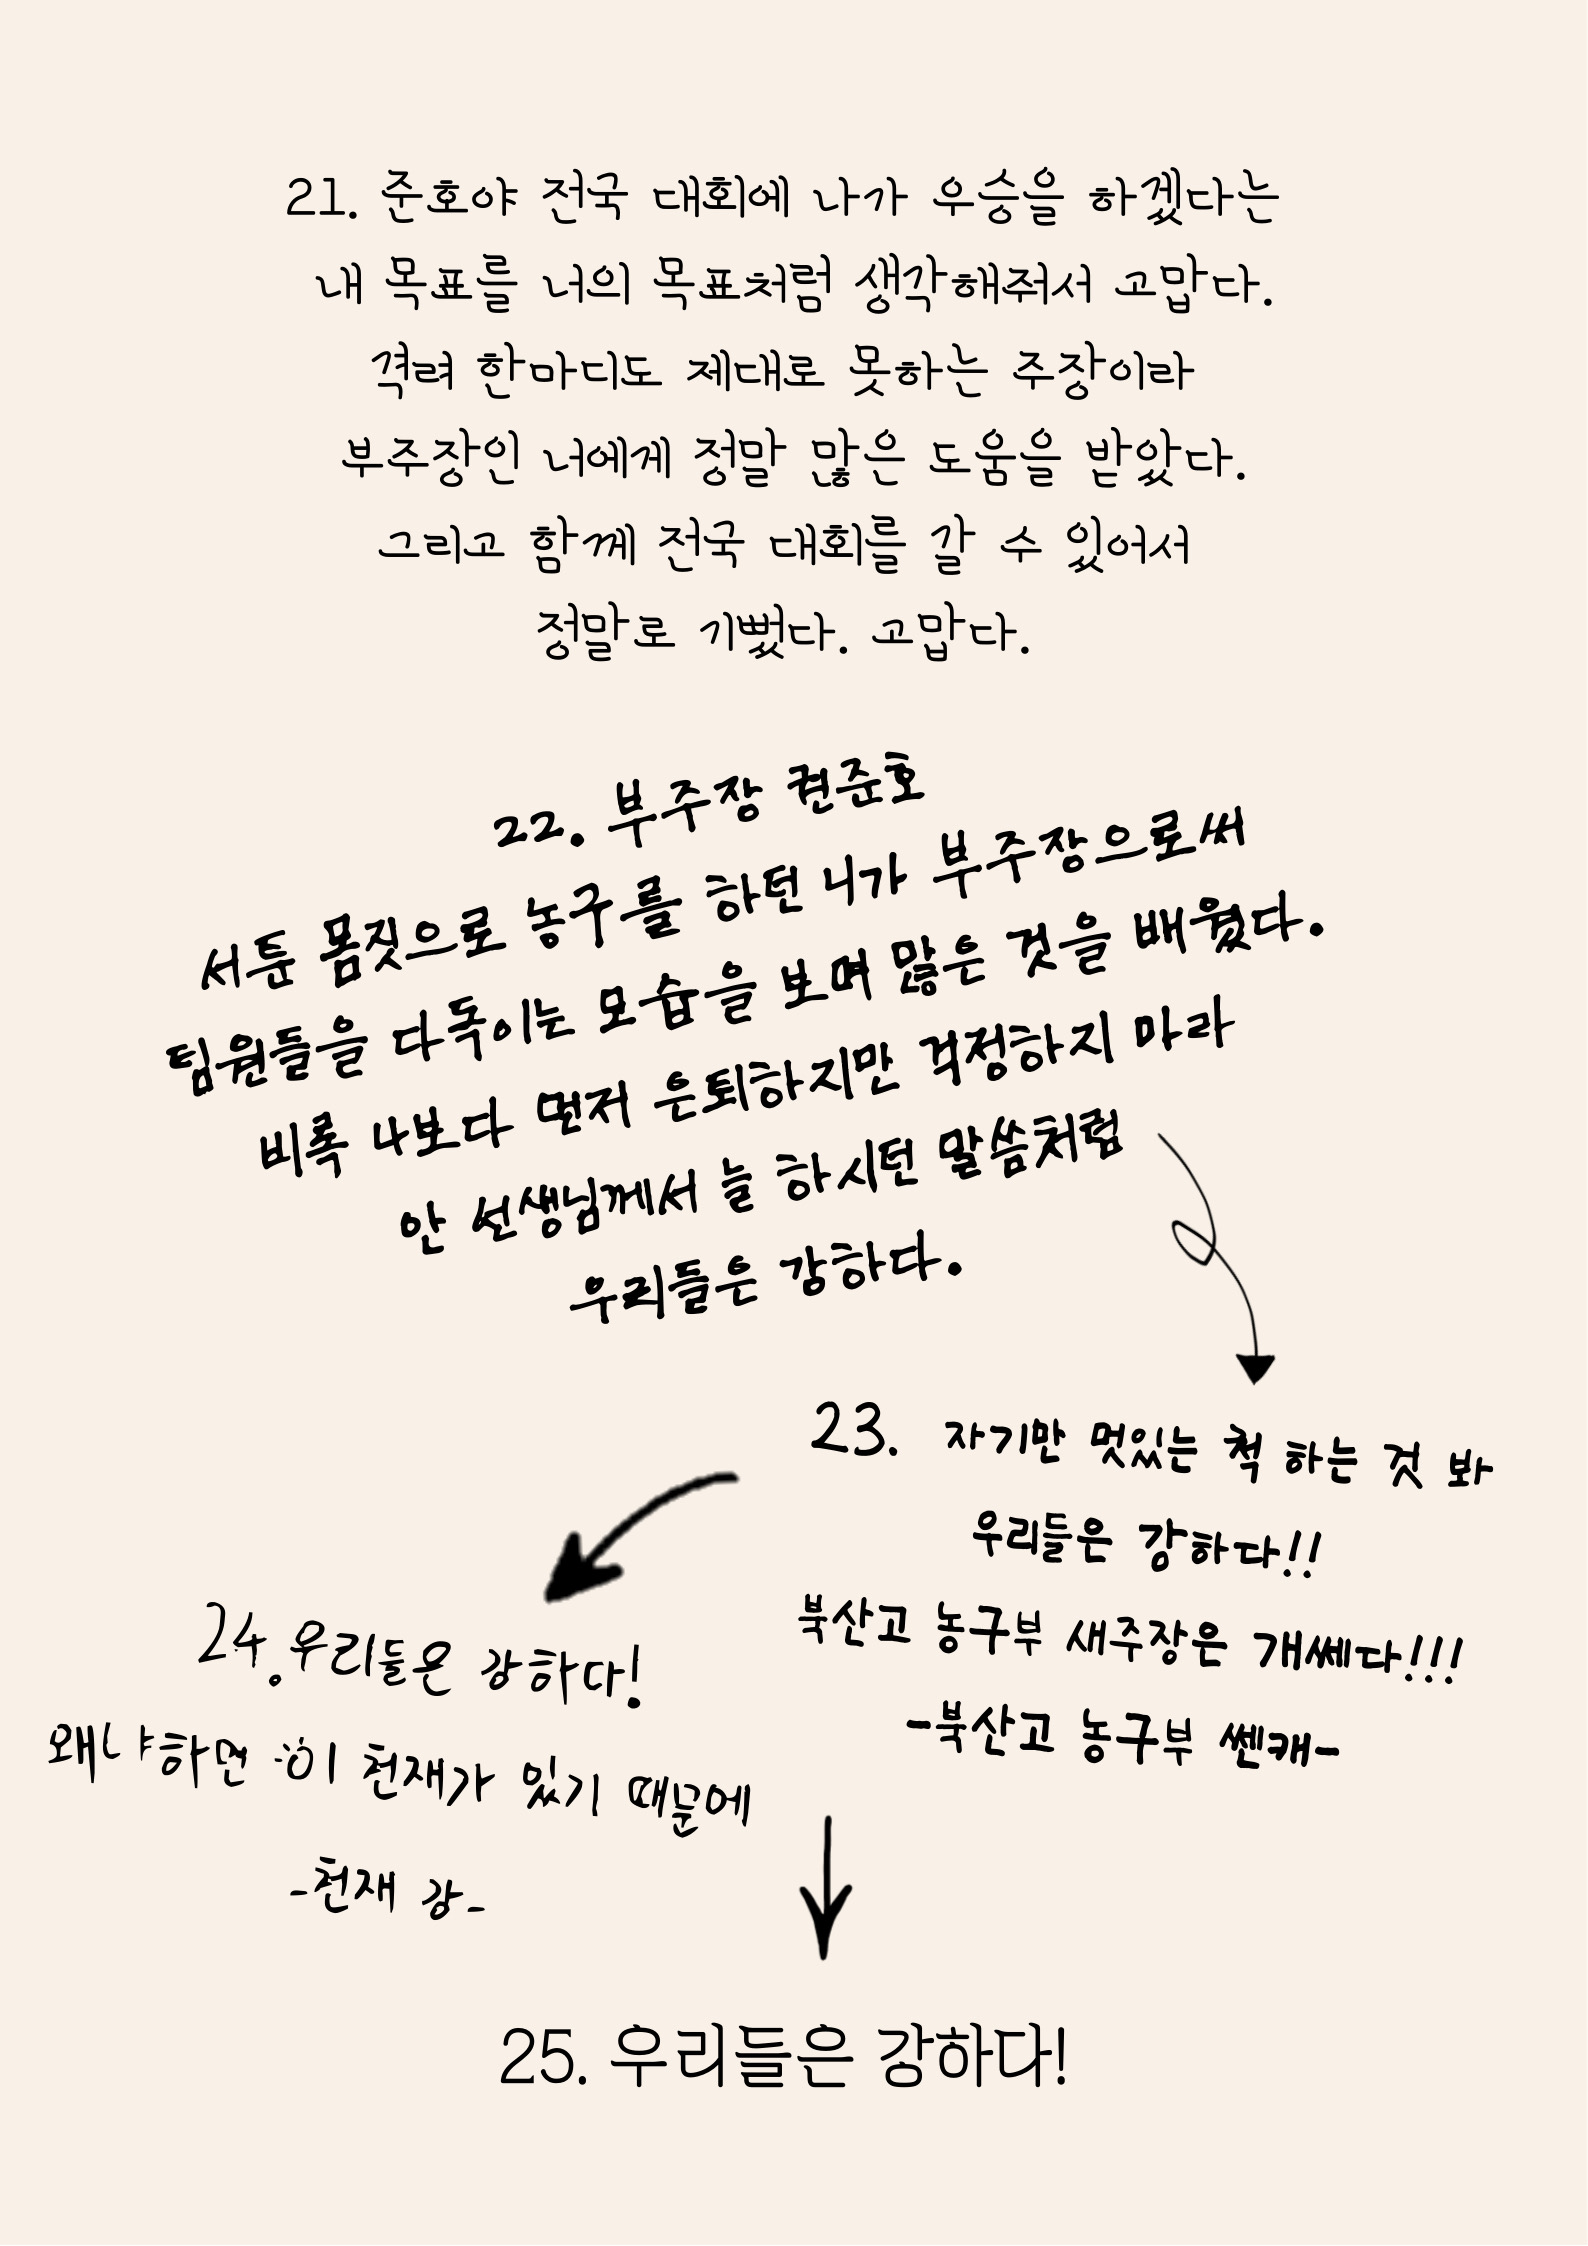 21. 준호야 전국 대회에 나가 우승을 하겠다는
내 목표를 너의 목표처럼 생각해줘서 고맙다.
격려 한마디도 제대로 못하는 주장이라
부주장인 너에게 정말 많은 도움을 받았다.
그리고 함께 전국 대회를 갈 수 있어서
정말로 기뻤다. 고맙다.
22. 부주장 권준호
서툰 몸짓으로 농구를 하던 니가 부주장으로써
팀원들을 다독이는 모습을 보며 많은 것을 배웠다.
비록 나보다 먼저 은퇴하지만 걱정하지 마라
안 선생님께서 늘 하시던 말씀처럼
우리들은 강하다.
23. 자기만 멋있는 척 하는 것 봐
우리들은 강하다!!
북산고 농구부 새주장은 개쎄다!!!
-북산고 농구부 쎈캐-
24. 우리들은 강하다!
왜냐하면 이 천재가 있기 때문에
-천재 강-
25. 우리들은 강하다!